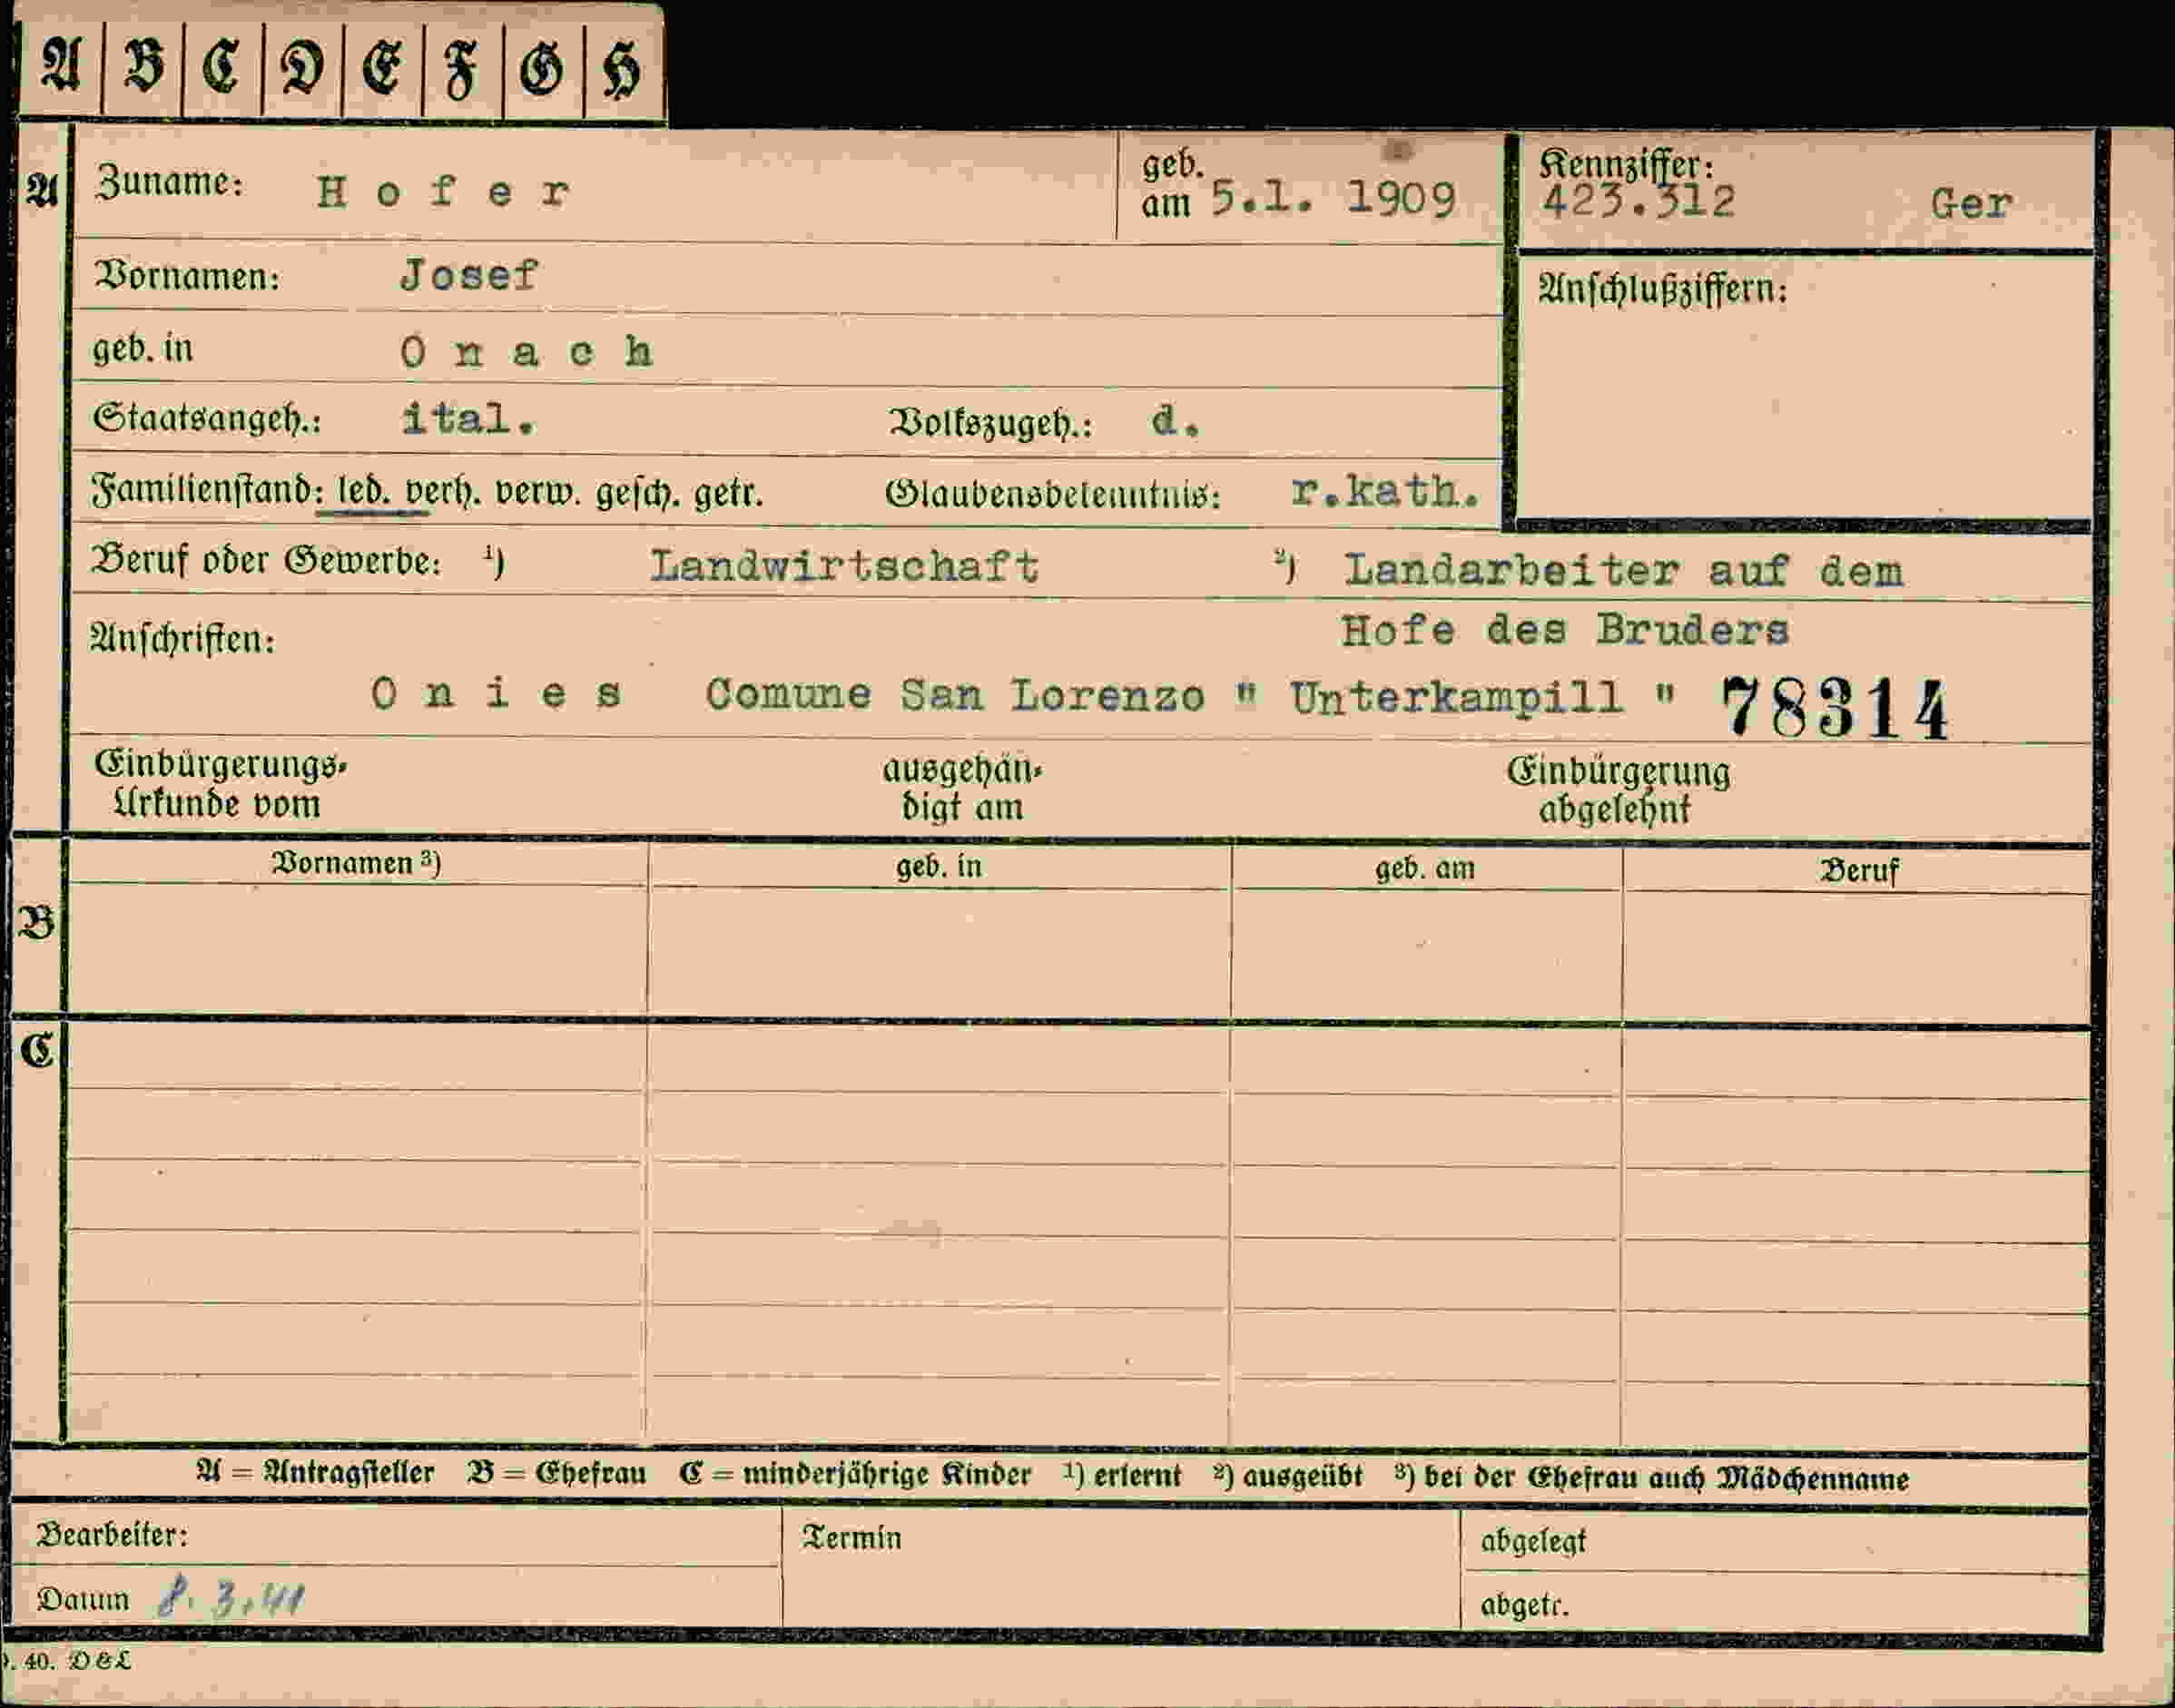 A B C D E F G H
A Zuname: Hofer geb. am 5.1. 1909 Kennziffer: 423.312 Ger
Vornamen: Josef Anschlußziffern:
geb. in Onach
Staatsangeh.: ital. Volkszugeh.: d.
Familienstand: led. verh. verw. gesch. getr. Glaubensbekenntnis: r.kath.
Beruf oder Gewerbe: ¹) Landwirtschaft ²) Landarbeiter auf dem
Anschriften: Hofe des Bruders
Onies Comune San Lorenzo " Unterkampill " 78314
Einbürgerungs- ausgehän- Einbürgerung
Urkunde vom digt am abgelehnt
Vornamen ³) geb. in geb. am Beruf
B
C
A = Antragsteller B = Ehefrau C = minderjährige Kinder ¹) erlernt ²) ausgeübt ³) bei der Ehefrau auch Mädchenname
Bearbeiter: Termin abgelegt
Datum 8.3.41 abgetr.
40. D & L